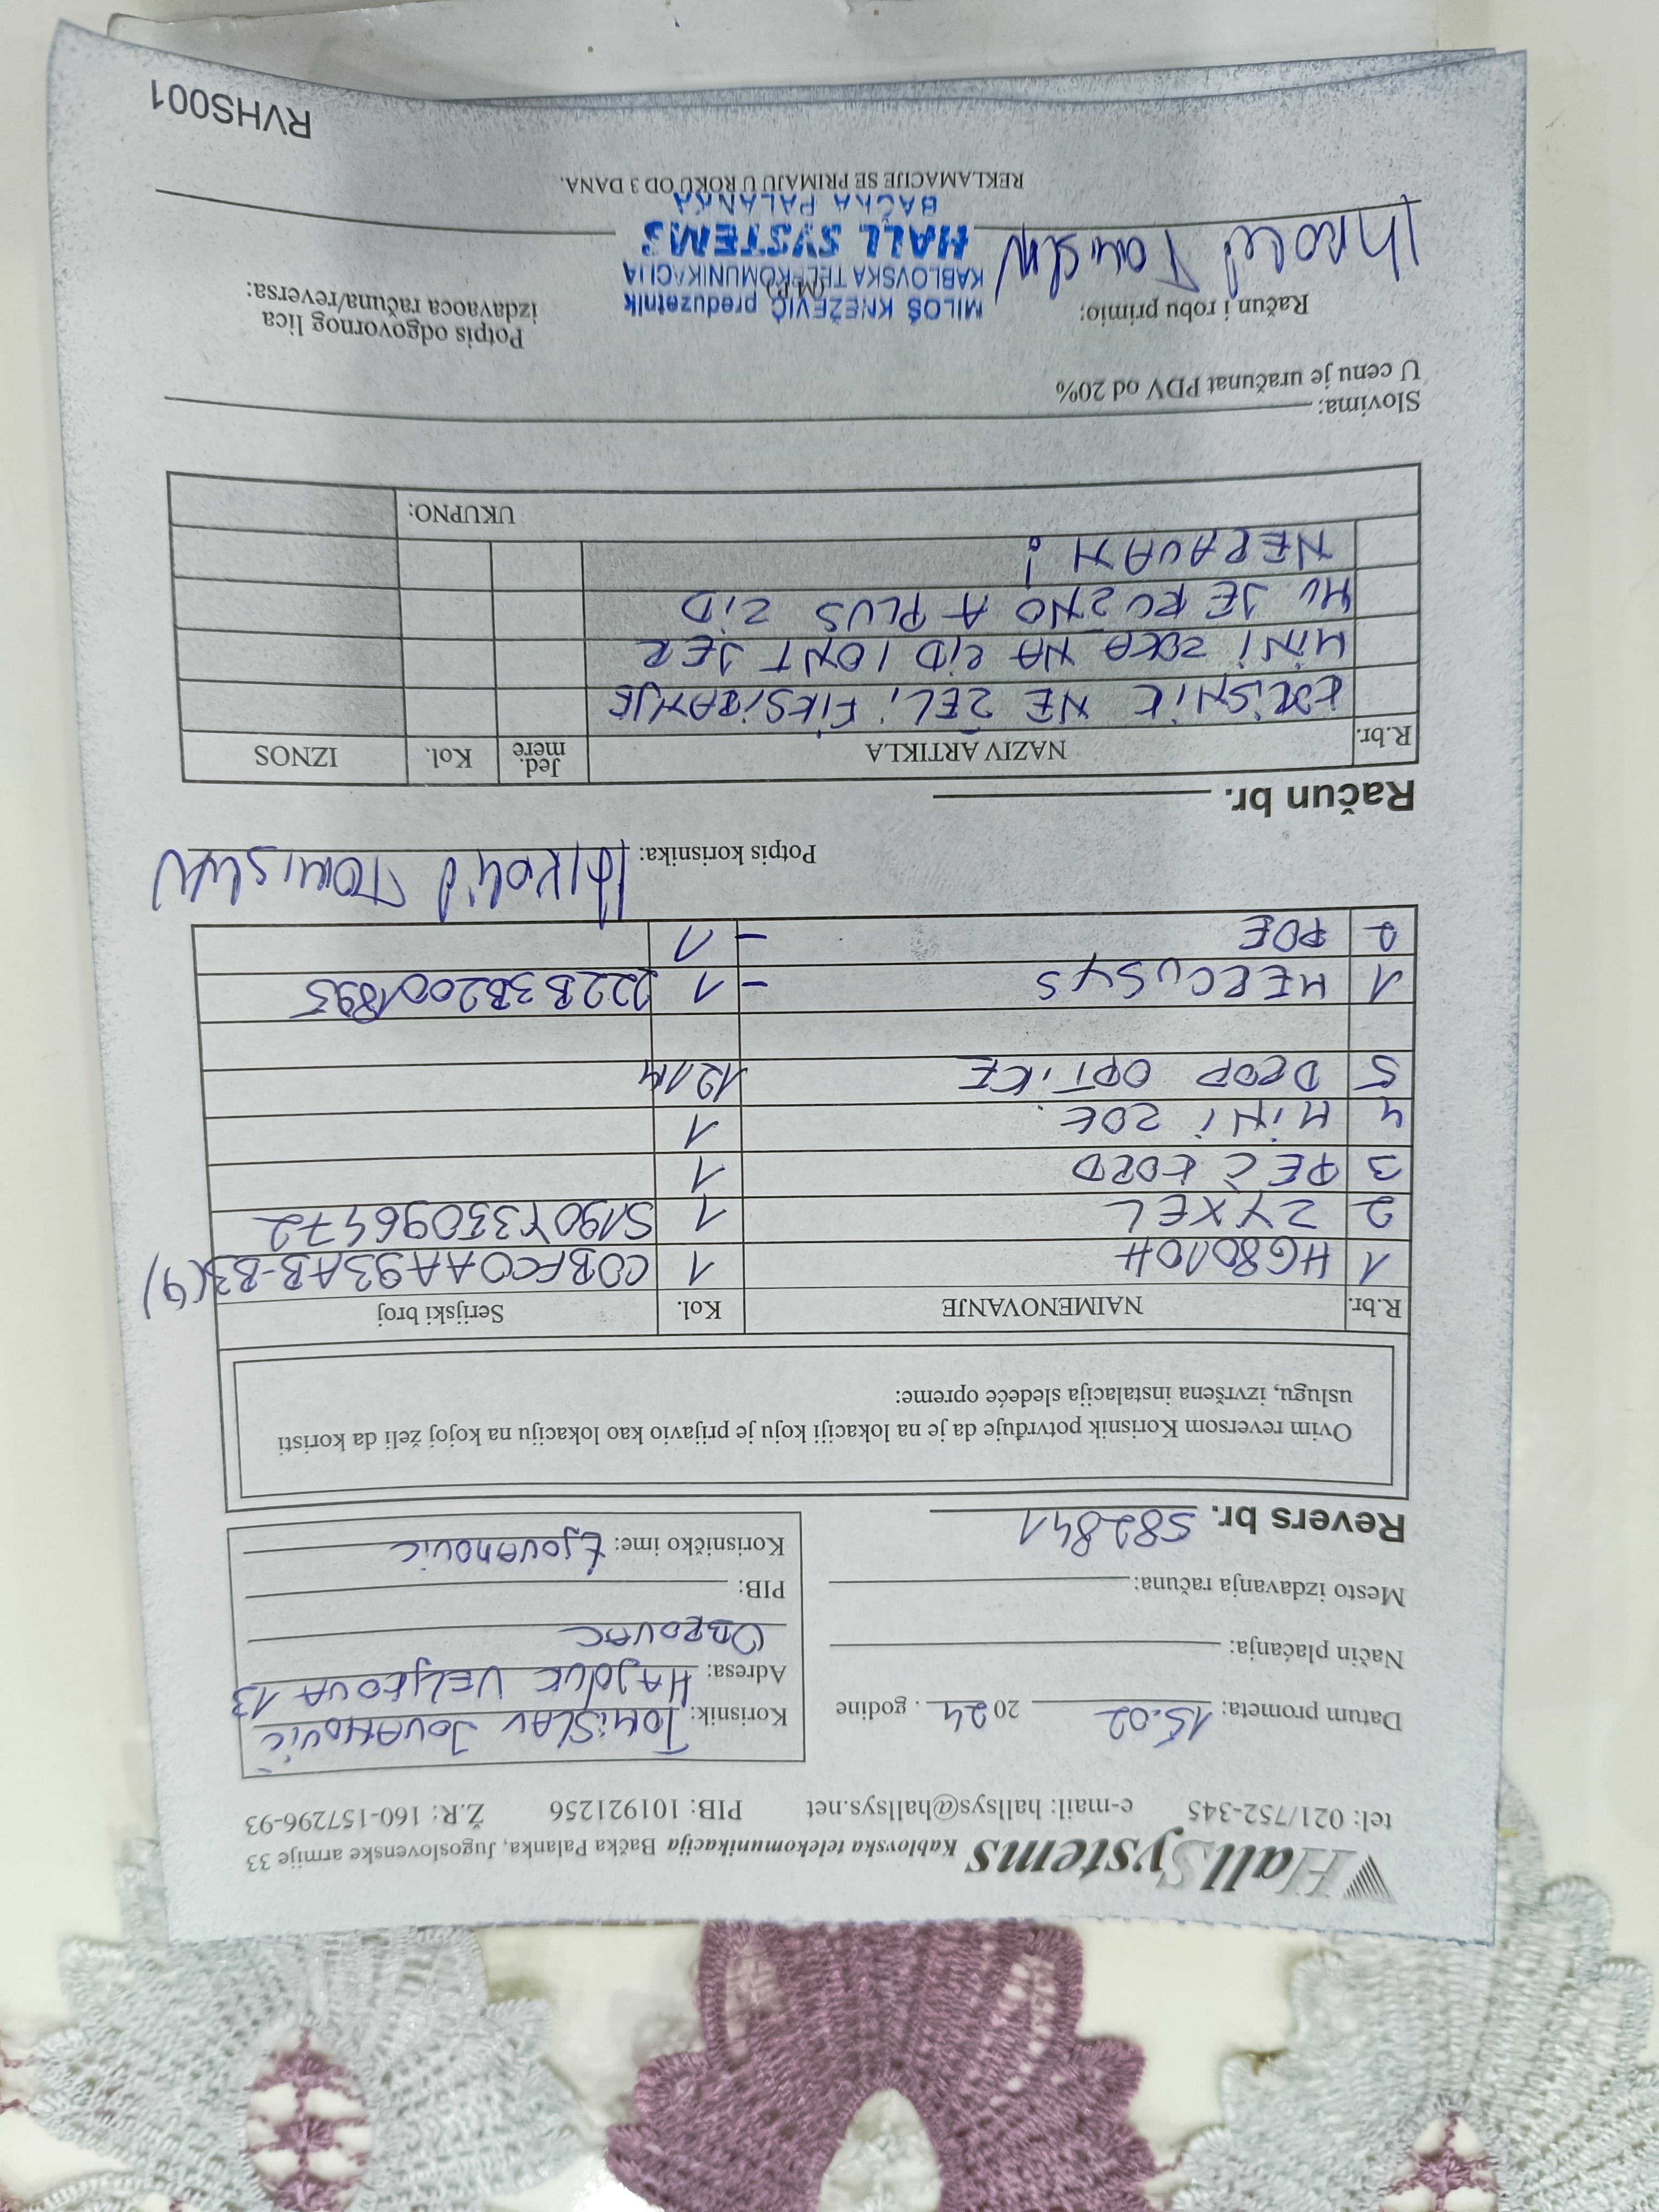 HallSystems Kablovska telekomunikacija Bačka Palanka, Jugoslovenske armije 33
tel: 021/752-345 e-mail: hallsys@hallsys.net PIB: 101921256 Ž.R: 160-157296-93
Datum prometa: 15.02 2024. godine
Način plaćanja:
Mesto izdavanja računa:
Revers br. 582841
Korisnik: TOMISLAV JOVANOVIĆ
Adresa: HAJDUK VELJKOVA 13
OBROVAC
PIB:
Korisničko ime: tjovanovic
Ovim reversom Korisnik potvrđuje da je na lokaciji koju je prijavio kao lokaciju na kojoj želi da koristi
uslugu, izvršena instalacija sledeće opreme:
R.br. NAIMENOVANJE Kol. Serijski broj
1 HG8010H 1 C0BFC0AA93AB-B3(9)
2 ZYXEL 1 S190Y33096472
3 PEČ KORD 1
4 MINI ZOK 1
5 DROP OPTIKE 121M
1 MERCUSYS -1 222B3B2001895
2 POE -1
Potpis korisnika:
Račun br.
R.br. NAZIV ARTIKLA Jed. mere Kol. IZNOS
KORISNIK NE ŽELI FIKSIRANJE
MINI ZOKA NA ZID I ONT JER
MU JE RUŽNO A PLUS ZID
NERAVAN!
UKUPNO:
Slovima:
U cenu je uračunat PDV od 20%
Račun i robu primio:
(M.P.)
Potpis odgovornog lica
izdavaoca računa/reversa:
MILOŠ KNEŽEVIĆ preduzetnik
KABLOVSKA TELEKOMUNIKACIJA
HALL SYSTEMS
BAČKA PALANKA
REKLAMACIJE SE PRIMAJU U ROKU OD 3 DANA.
RVHS001